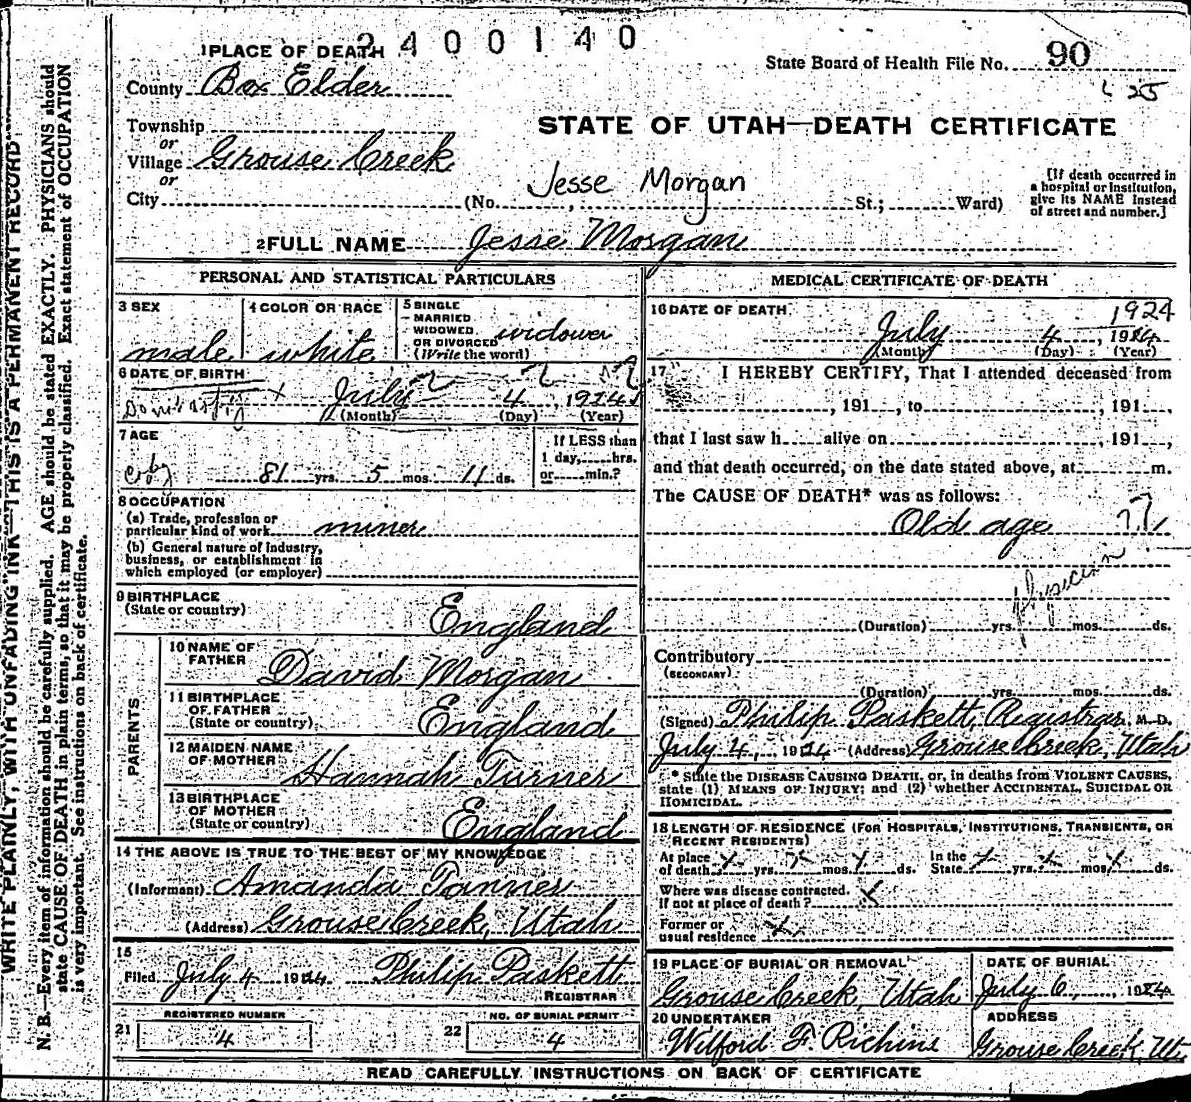 2400140
1 PLACE OF DEATH
State Board of Health File No. 90
County Box Elder
STATE OF UTAH—DEATH CERTIFICATE
Township
or
Village Grouse Creek
or
City (No. , Jesse Morgan St.; Ward)
[If death occurred in
a hospital or institution,
give its NAME instead
of street and number.]
2 FULL NAME Jesse Morgan
PERSONAL AND STATISTICAL PARTICULARS
3 SEX
male
4 COLOR OR RACE
white
5 SINGLE
MARRIED
WIDOWED
OR DIVORCED widower
(Write the word)
6 DATE OF BIRTH
July 4, 1924
(Month) (Day) (Year)
7 AGE
81 yrs. 5 mos. 11 ds.
If LESS than
1 day, hrs.
or min.?
8 OCCUPATION
(a) Trade, profession or
particular kind of work miner
(b) General nature of industry,
business, or establishment in
which employed (or employer)
9 BIRTHPLACE
(State or country) England
PARENTS
10 NAME OF
FATHER David Morgan
11 BIRTHPLACE
OF FATHER
(State or country) England
12 MAIDEN NAME
OF MOTHER Hannah Turner
13 BIRTHPLACE
OF MOTHER
(State or country) England
14 THE ABOVE IS TRUE TO THE BEST OF MY KNOWLEDGE
(Informant) Amanda Tanner
(Address) Grouse Creek, Utah
15
Filed July 4 1924 Philip Paskett
REGISTRAR
21 REGISTERED NUMBER
4
22 NO. OF BURIAL PERMIT
4
MEDICAL CERTIFICATE OF DEATH
16 DATE OF DEATH 1924
July 4, 1924
(Month) (Day) (Year)
17 I HEREBY CERTIFY, That I attended deceased from
, 191 , to , 191 ,
that I last saw h alive on , 191 ,
and that death occurred, on the date stated above, at m.
The CAUSE OF DEATH* was as follows:
Old age ??
physician
(Duration) yrs. mos. ds.
Contributory
(SECONDARY)
(Duration) yrs. mos. ds.
(Signed) Philip Paskett, Registrar, M.D.
July 4, 1924 (Address) Grouse Creek, Utah
* State the DISEASE CAUSING DEATH, or, in deaths from VIOLENT CAUSES,
state (1) MEANS OF INJURY; and (2) whether ACCIDENTAL, SUICIDAL OR
HOMICIDAL.
18 LENGTH OF RESIDENCE (FOR HOSPITALS, INSTITUTIONS, TRANSIENTS, OR
RECENT RESIDENTS)
At place
of death x yrs. x mos. x ds. In the
State x yrs. x mos. x ds.
Where was disease contracted,
if not at place of death? x
Former or
usual residence x
19 PLACE OF BURIAL OR REMOVAL
Grouse Creek, Utah
DATE OF BURIAL
July 6, 1924
20 UNDERTAKER
Wilford F Richins
ADDRESS
Grouse Creek, Ut
READ CAREFULLY INSTRUCTIONS ON BACK OF CERTIFICATE
WRITE PLAINLY, WITH UNFADING INK—THIS IS A PERMANENT RECORD
N. B.—Every item of information should be carefully supplied. AGE should be stated EXACTLY. PHYSICIANS should
state CAUSE OF DEATH in plain terms, so that it may be properly classified. Exact statement of OCCUPATION
is very important. See instructions on back of certificate.